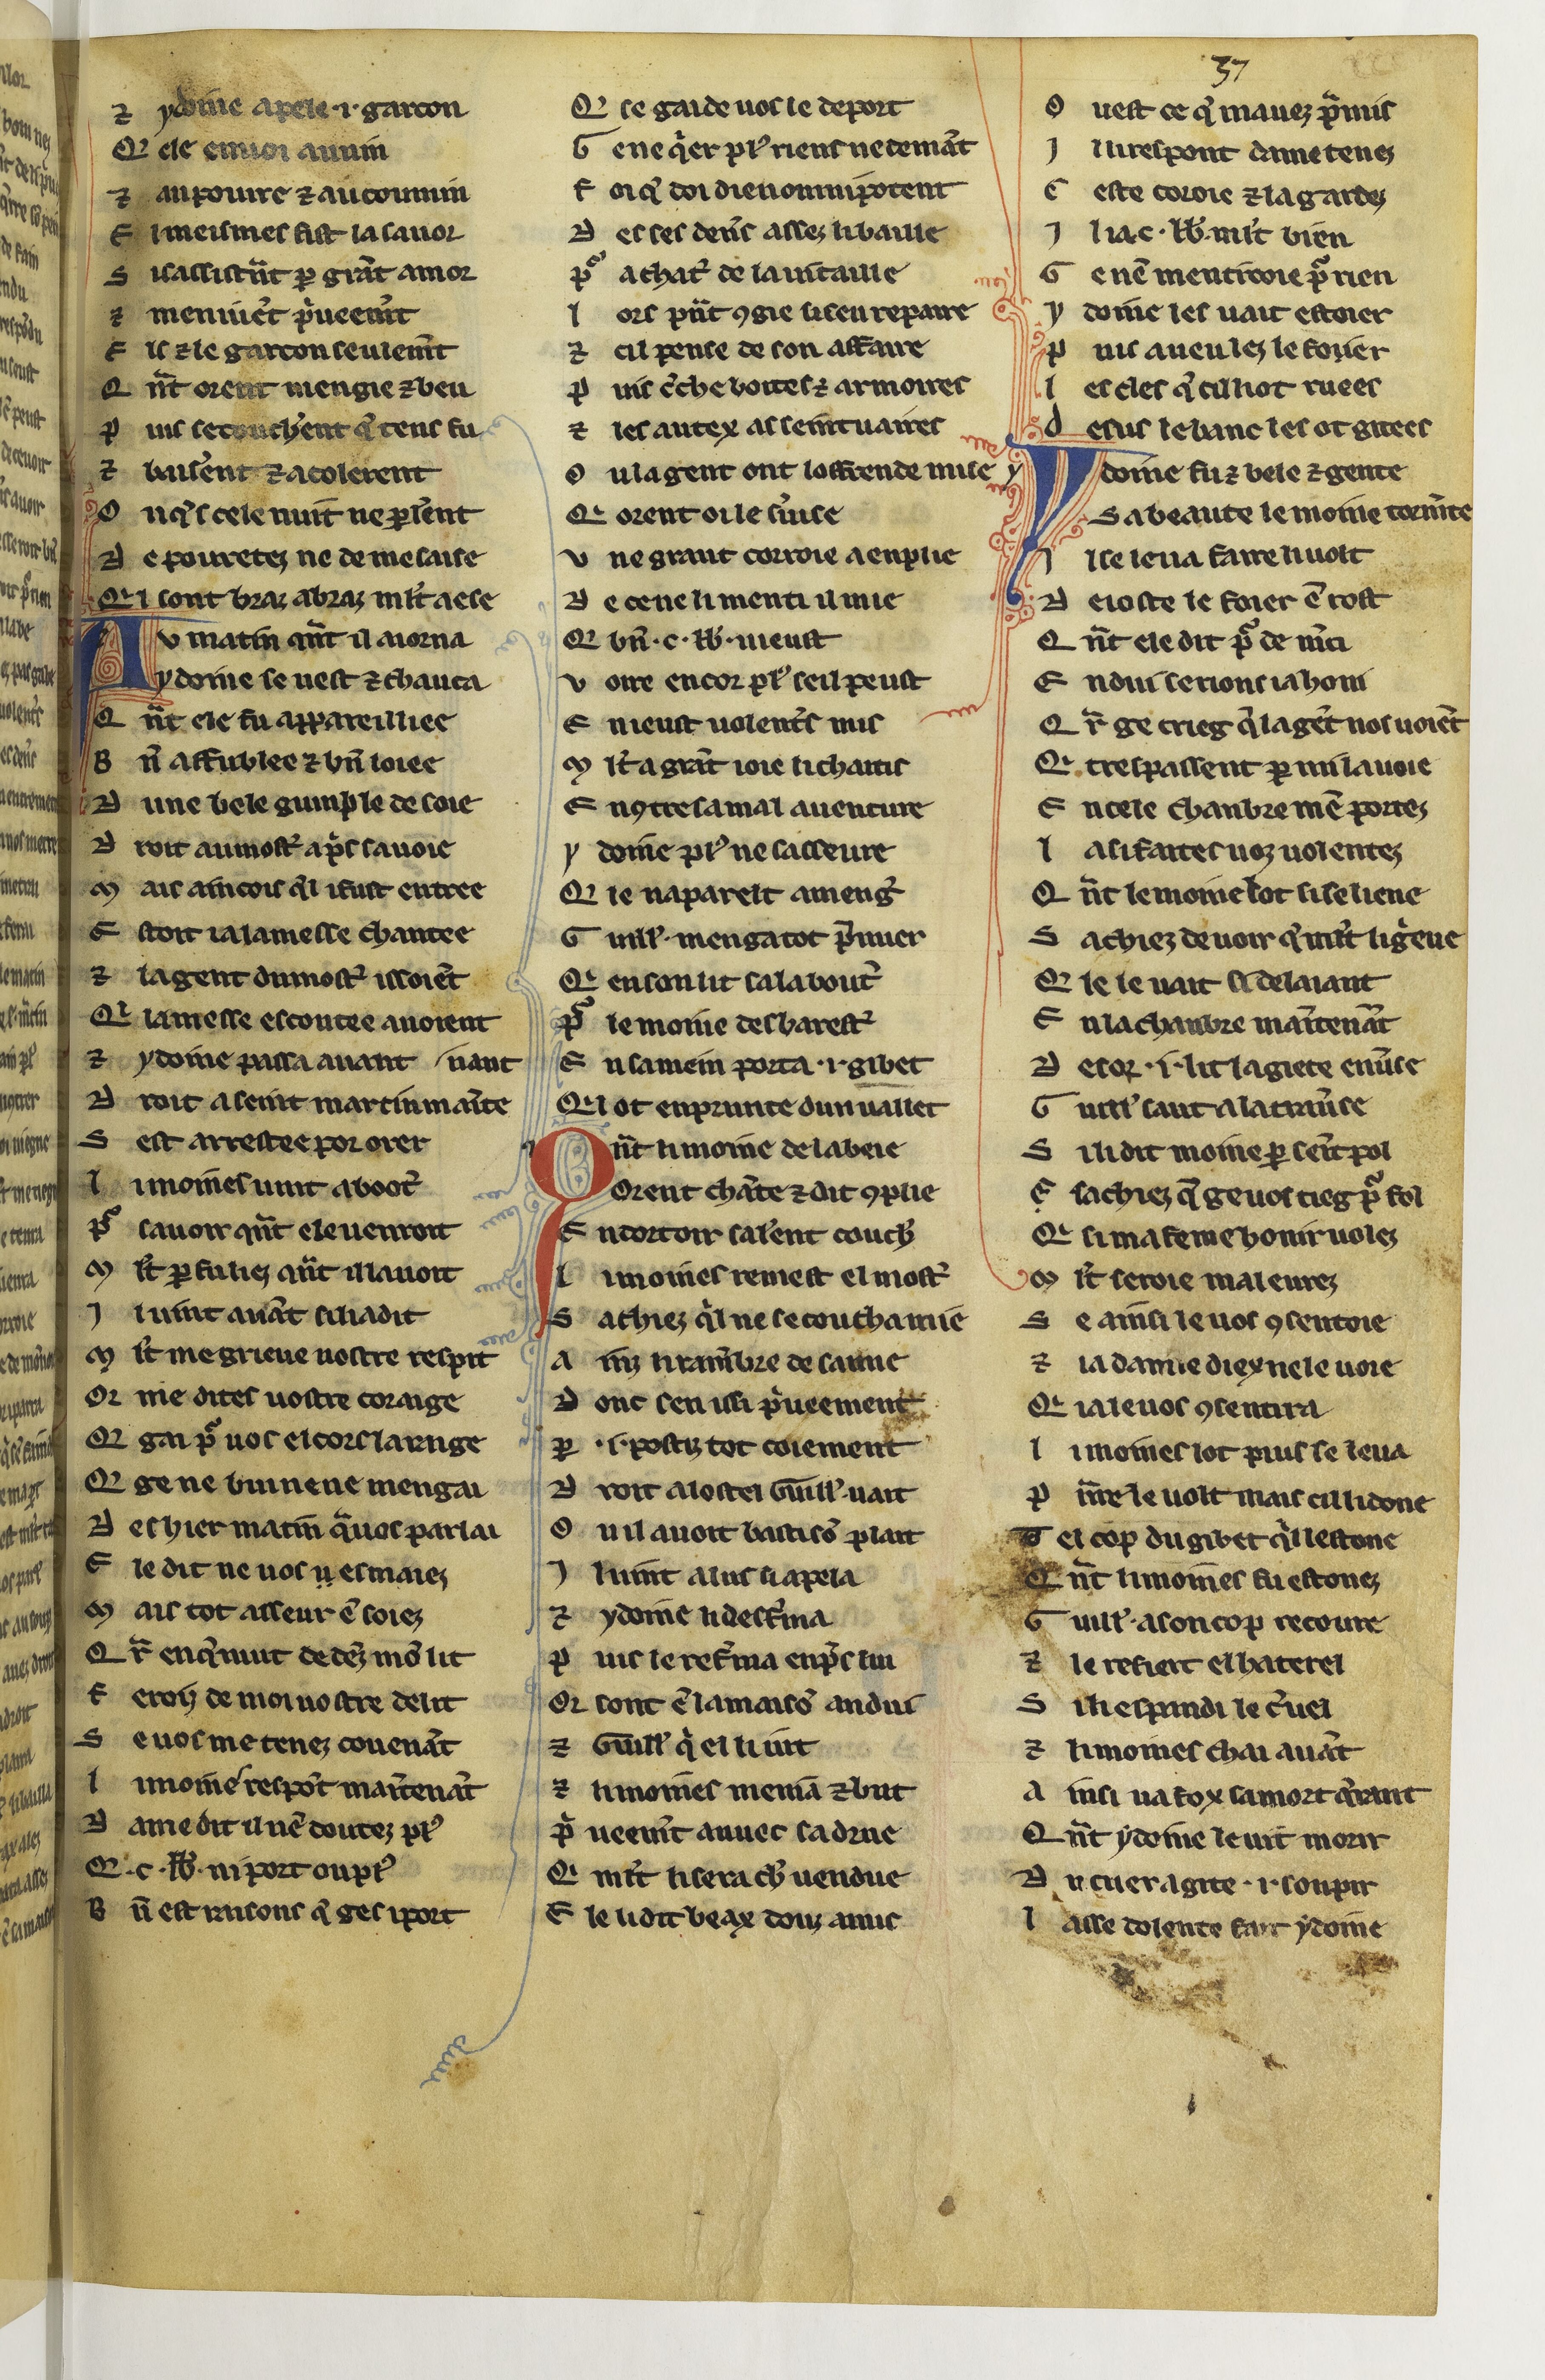 37
⁊ ydoine apele .i. garcon
Qͥ ele enuoi au uin
⁊ au poiure ⁊ au coumin
E lmeismes fist la sauor
S il assist̄nt ꝑ gr̃at amor
⁊ meniuẽt p̃ueem̃t
E ls ⁊ le garcon seulem̃t
Q ñt orent mengie ⁊ beu
P uis se couch'ent q̃ tens fu
⁊ baisẽnt ⁊ acolerent
O nq̃s cele nuit ne ꝑlẽnt
D e pouretez ne de mesaise
Qͥl sont braz a braz ml̃t a ese
Au matin qñt il aiorna
ydoine se uest ⁊ chauca
Q ñt ele fu appareilliee
B ñ affublee ⁊ bñ loiee
D une bele guimple de soie
D roit au most̃ a p̃s sauoie
M ais aincois q̃l i fust entree
E stoit ia la messe chantee
⁊ la gent du most̃ issoiẽt
Qͥ la messe escoutee auoient
⁊ ydoine passa auant
D roit a seint martin mãtenant
S est arrestee por orer
L i moines uint a bout̃
P̃ sauoir qñt ele uenroit
M l̃t ꝑ fu liez qñt il la uoit
I l uint auãt si li a dit
M l̃t me grieue uostre respit
Or me dites uostre coraige
Qͥ gai p̃ uos el cors la rage
Qͥ ge ne bui ne ne mengai
D es hier matin q̃ uos parlai
E le dit ne uos esmaiez
M ais tot asseur ẽ soiez
Q r̃ enq̃nuit dedẽz mõ lit
F eroiz de moi uostre delit
S e uos me tenez couenãt
L i moines respõt mãtenãt
D ame dit il nẽ doutez pl'
Qͥ .c. lb'. ni port ou pl'
B ñ est raisons q̃ ges i port
Qͥ se gaide uos le deport
G e ne q̃er pl' riens ne demãt
F oi q̃ doi dieu omnipotent
D es ses deñs assez li baille
P̃ achat̃ de la uitaille
L ors pñt ꝯgie si sen repaire
⁊ cil pense de son affaire
P uis c̃che boites ⁊ armoires
⁊ les autex as seintuaires
O u la gent ont loffrende mise
Qͥ orent oi le s̃uise
V ne grant corroie a enplie
D e ce ne li menti il mie
Qͥ bñ .c. lb'. nieust
V oire encor pl' se il peust
E nieust uolent̃s mis
M l̃t a grãt ioie li chaitis
E nꝯtre sa mal auenture
Y doine pl' ne sasseure
Qͥ le naparelt a meng̃
G uill'. menga tot p̃mier
Qͥ en son lit sala bout̃
P̃ le moine desbarest̃
E n sa mein porta .i. gibet
Qͥl ot enprunte dun uallet
Qñt li moine de labeie
Orent chãte ⁊ dit ꝯplie
E n dortoir sal̃ent couch'
L i moines remest el most̃
S achiez q̃l ne se coucha mie
A inz li ramẽbre de samie
D onc sen issi p̃ueement
P ꝑ .i. postiz tot coiement
D roit a lostel Guill'. uait
O u il auoit basti sõ plait
I l uint a luis si apela
⁊ ydoine li desf̃ma
P uis le ref̃ma enp̃s lui
Or sont ẽ la maisõ andui
⁊ Guill' q̃ el li uit
⁊ li moines meniã ⁊ but
P̃ ueem̃t auuec sa drue
Qͥ ml̃t li sera ch' uendue
E le li dit beax douz amis
O uest ce q̃ mauez p̃mis
I l li respont dame tenez
C este coroie ⁊ la gardez
I l i a .c. lb'. ml̃t bien
G e nẽ mentiroie p̃ rien
Y doine les uait estoier
P uis aueulez le foier
L es cles q̃ cil li ot ruees
D esus le banc les ot gitees
Ydoine fu ⁊ bele ⁊ gente
Sa beaute le moine tormẽte
I l se leua faire li uolt
D eioste le foier ẽ tost
Q ñt ele dit p̃ de m̃ci
E ndui serions ia honi
Q r̃ ge crieg q̃ la gẽt nos uoiẽt
Qͥ trespassent ꝑ mi la uoie
E n cele chanbre mẽ portez
L a si faites uoz uolentez
Q ñt le moine lot si se lieue
S achiez de uoir q̃ ml̃t li g̃eue
Qͥ le le uait si delaiant
E n la chanbre mãtenãt
D esor .i. lit la giete enũse
G uill' saut a la trau̇se
S i li dit moine ꝑ seĩt pol
E sachiez q̃ ge uos tieg p̃ fol
Qͥ si ma feme honir uolez
M l̃t seroie maleurez
S e ainsi le uos ꝯsentoie
⁊ ia damediex ne le uoie
Qͥ ia le uos ꝯsentira
L i moines lot puis se leua
P ñre le uolt mais cil li done
T el cop du gibet q̃l lestone
Q ñt li moines fu estonez
G uill'. a son cop recoure
⁊ le refiert el haterel
S i li espandi le c̃uel
⁊ li moines chai auãt
A insi ua fox sa mort q̃rant
Q ñt ydoine le uit morir
D u cuer a gite .i. soupir
L asse dolente fait ydoine